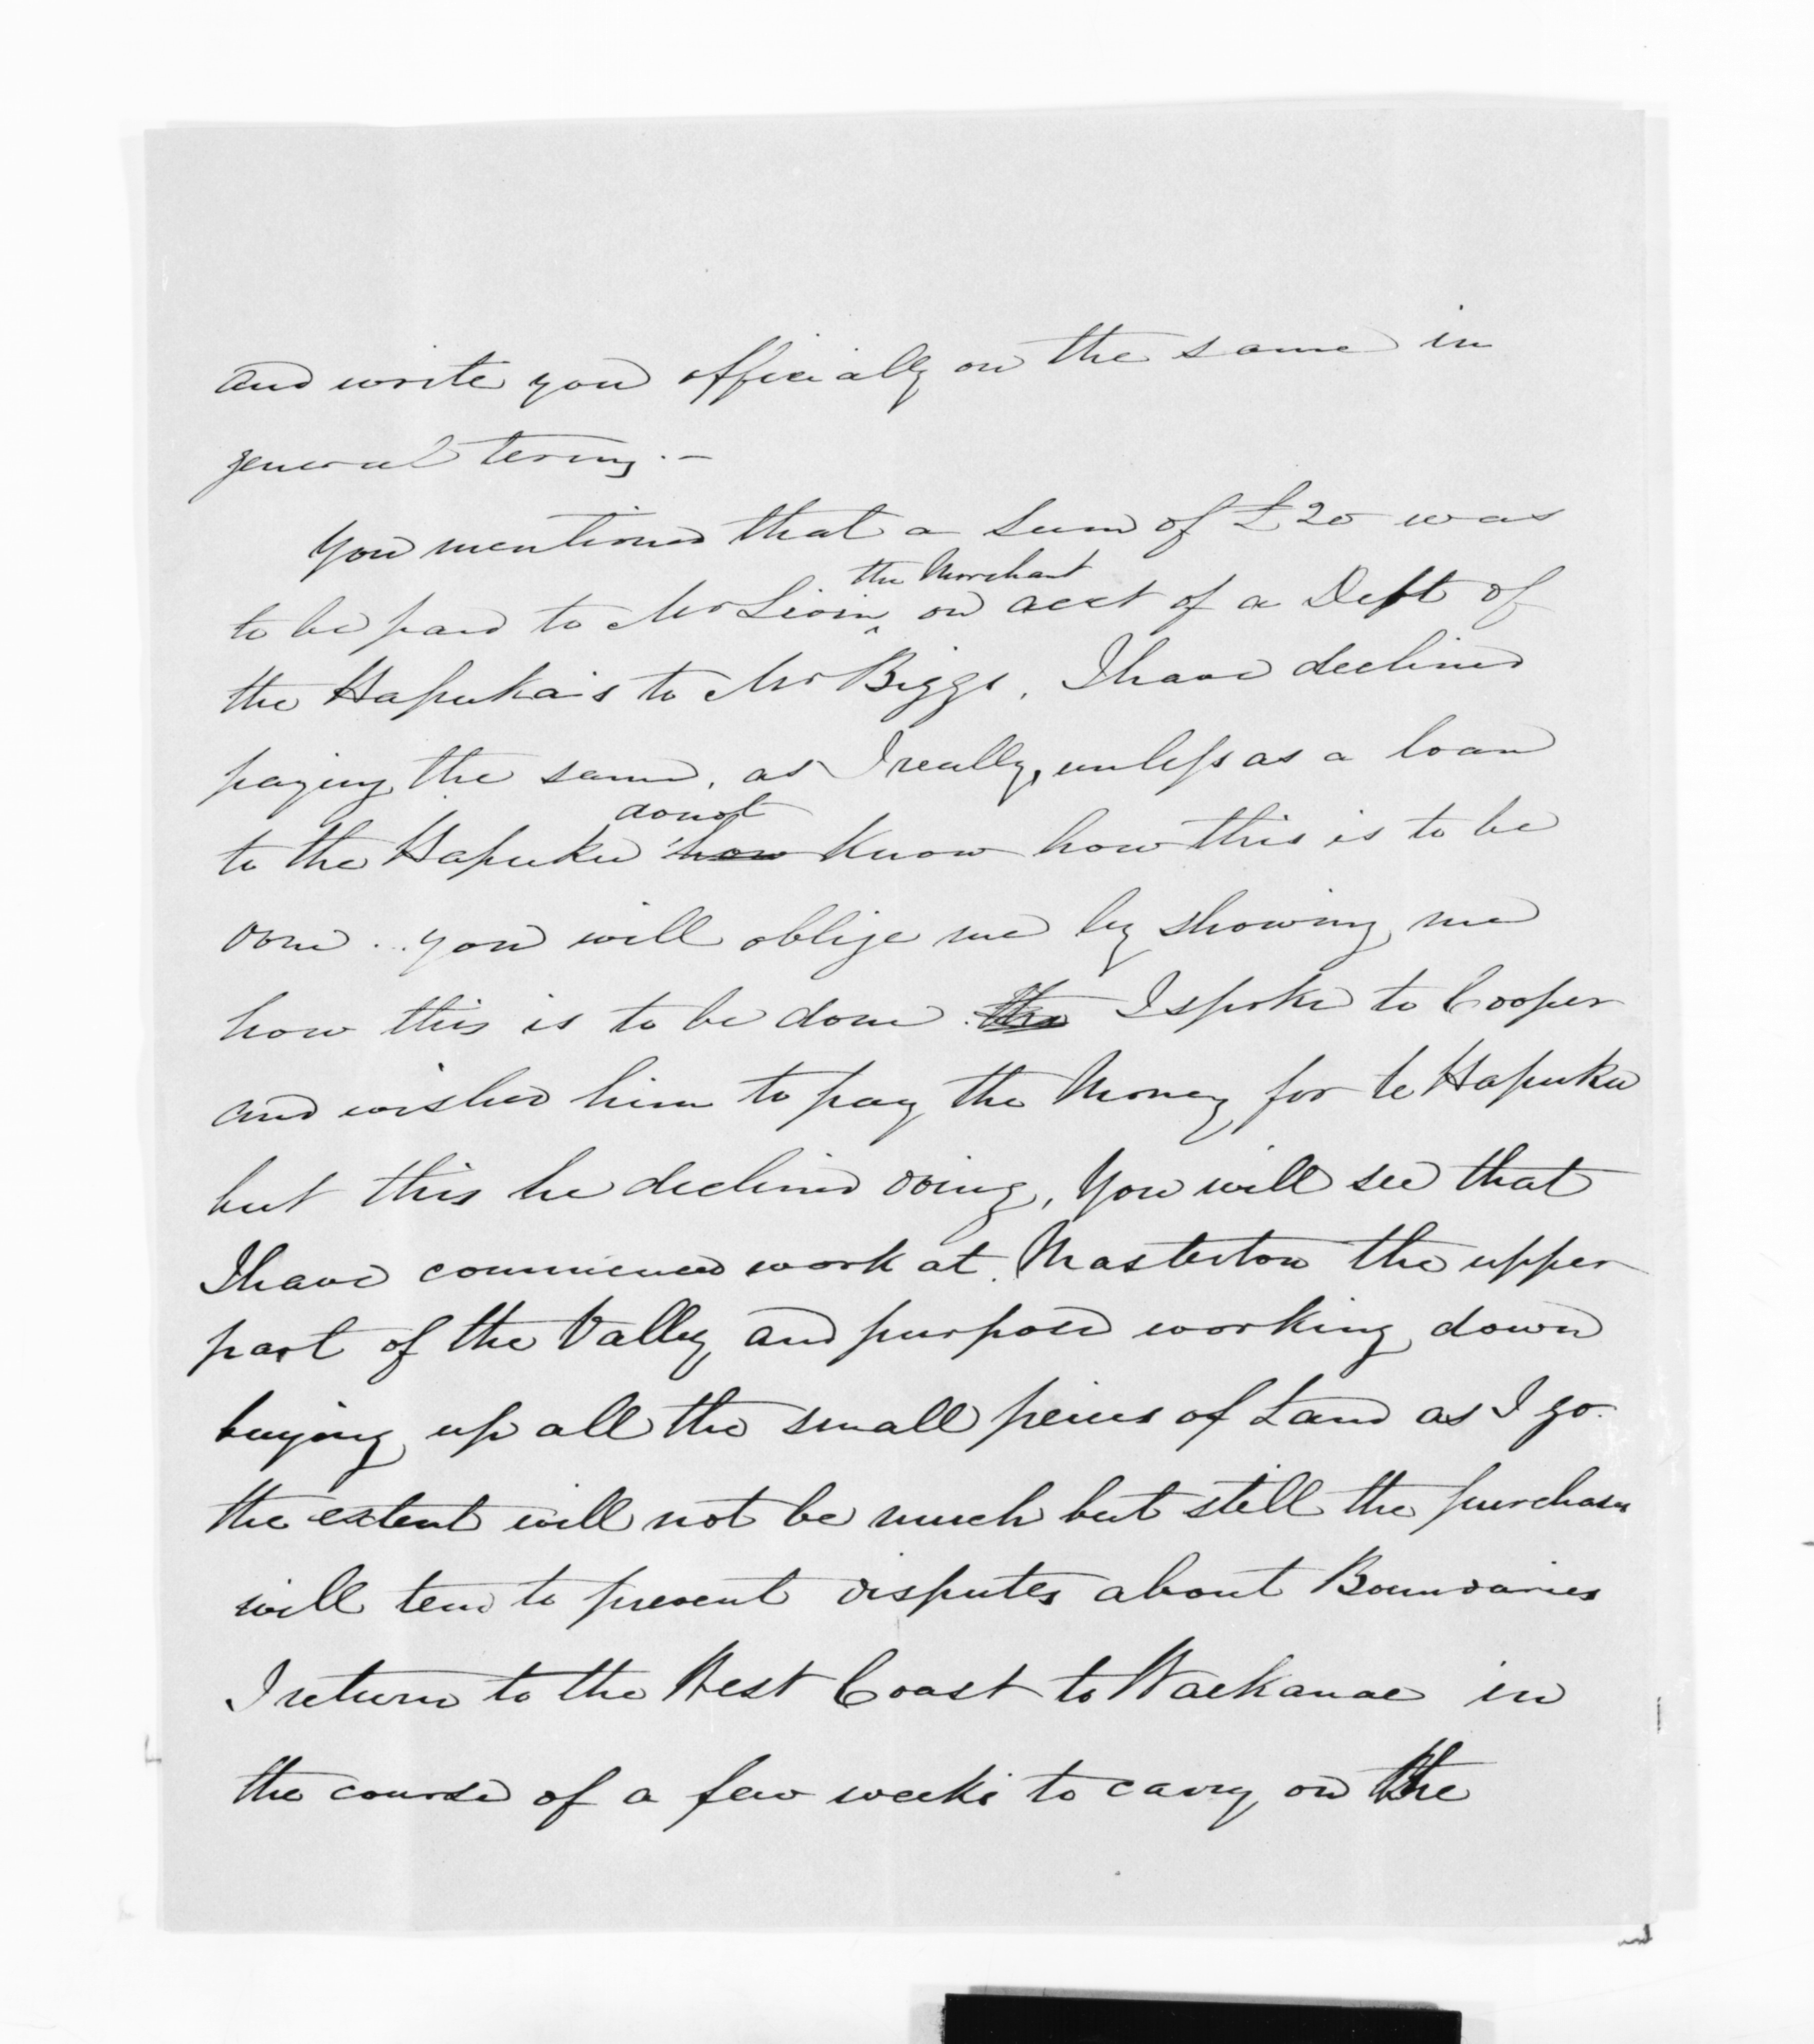 and write you officially on the same in
general terms. –
You mentioned that a sum of £20 was
the Merchant
to be paid to Mr Levin ^ on acct of a Debt of
the Hapuka's to Mr Biggs, I have declined
paying the same, as I really, unless as a loan
do not
to the Hapuku how know how this is to be
done... you will oblige me by showing me
how this is to be done. the I spoke to Cooper
and wished him to pay the Money for te Hapuku
but this he declined doing, You will see that
I have commenced work at Masterton the upper
part of the Valley and purpose working down
buying up all the small peices of Land as I go.
the extent will not be much but still the purchases
will tend to prevent disputes about Boundaries
I return to the West Coast to Waekanae in
the course of a few weeks to carry on the